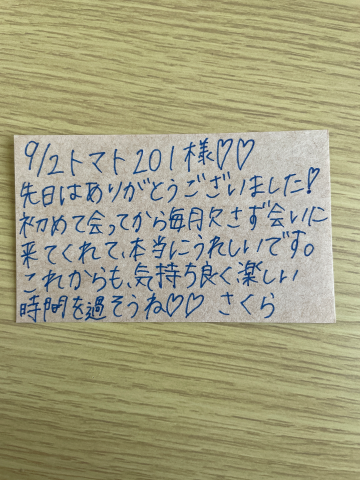 9/2トマト201様♡♡
先日はありがとうございました!
初めて会ってから毎月欠さず会いに
来てくれて、本当にうれしいです。
これからも、気持ち良く楽しい
時間を過そうね♡♡ さくら